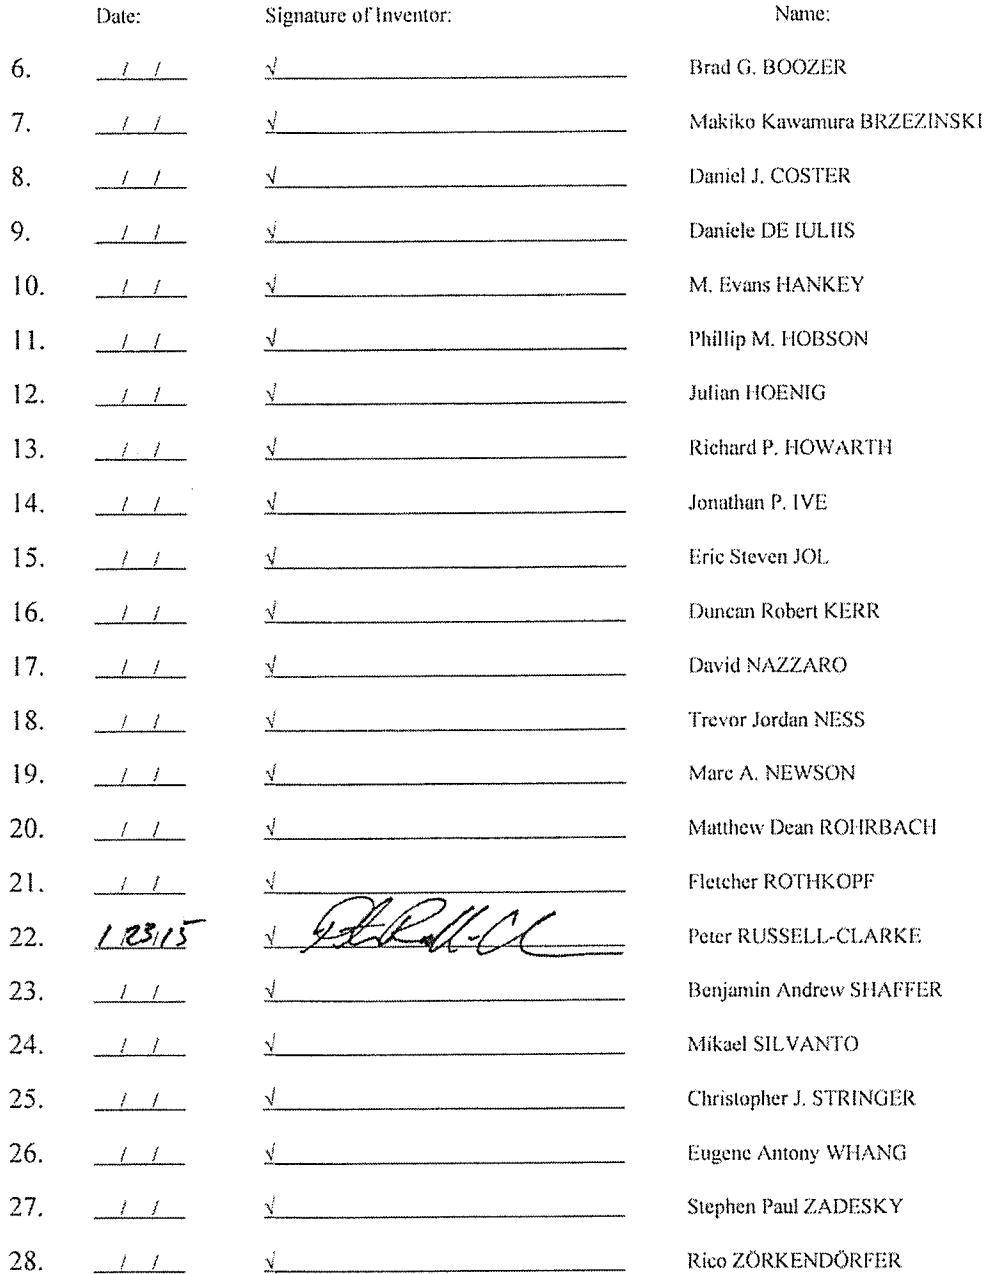 Date: Signature of Inventor: Name:
6. / / √ Brad G. BOOZER
7. / / √ Makiko Kawamura BRZEZINSKI
8. / / √ Daniel J. COSTER
9. / / √ Daniele DE IULIIS
10. / / √ M. Evans HANKEY
11. / / √ Phillip M. HOBSON
12. / / √ Julian HOENIG
13. / / √ Richard P. HOWARTH
14. / / √ Jonathan P. IVE
15. / / √ Eric Steven JOL
16. / / √ Duncan Robert KERR
17. / / √ David NAZZARO
18. / / √ Trevor Jordan NESS
19. / / √ Marc A. NEWSON
20. / / √ Matthew Dean ROHRBACH
21. / / √ Fletcher ROTHKOPF
22. 1/23/15 √ Peter RUSSELL-CLARKE
23. / / √ Benjamin Andrew SHAFFER
24. / / √ Mikael SILVANTO
25. / / √ Christopher J. STRINGER
26. / / √ Eugene Antony WHANG
27. / / √ Stephen Paul ZADESKY
28. / / √ Rico ZÖRKENDÖRFER